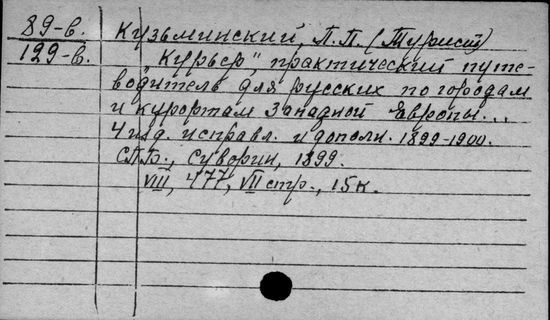 89-в.
129-в.
Кузьминский, П.П. (Турист)
„Курьер", практический путе-
водитель для русских по городам
и курортам Западной Европы...
4 изд. исправл. и дополн. 1899-1900.
СПБ., Суворин, 1899.
VIII, 477, VII стр., 15 к.